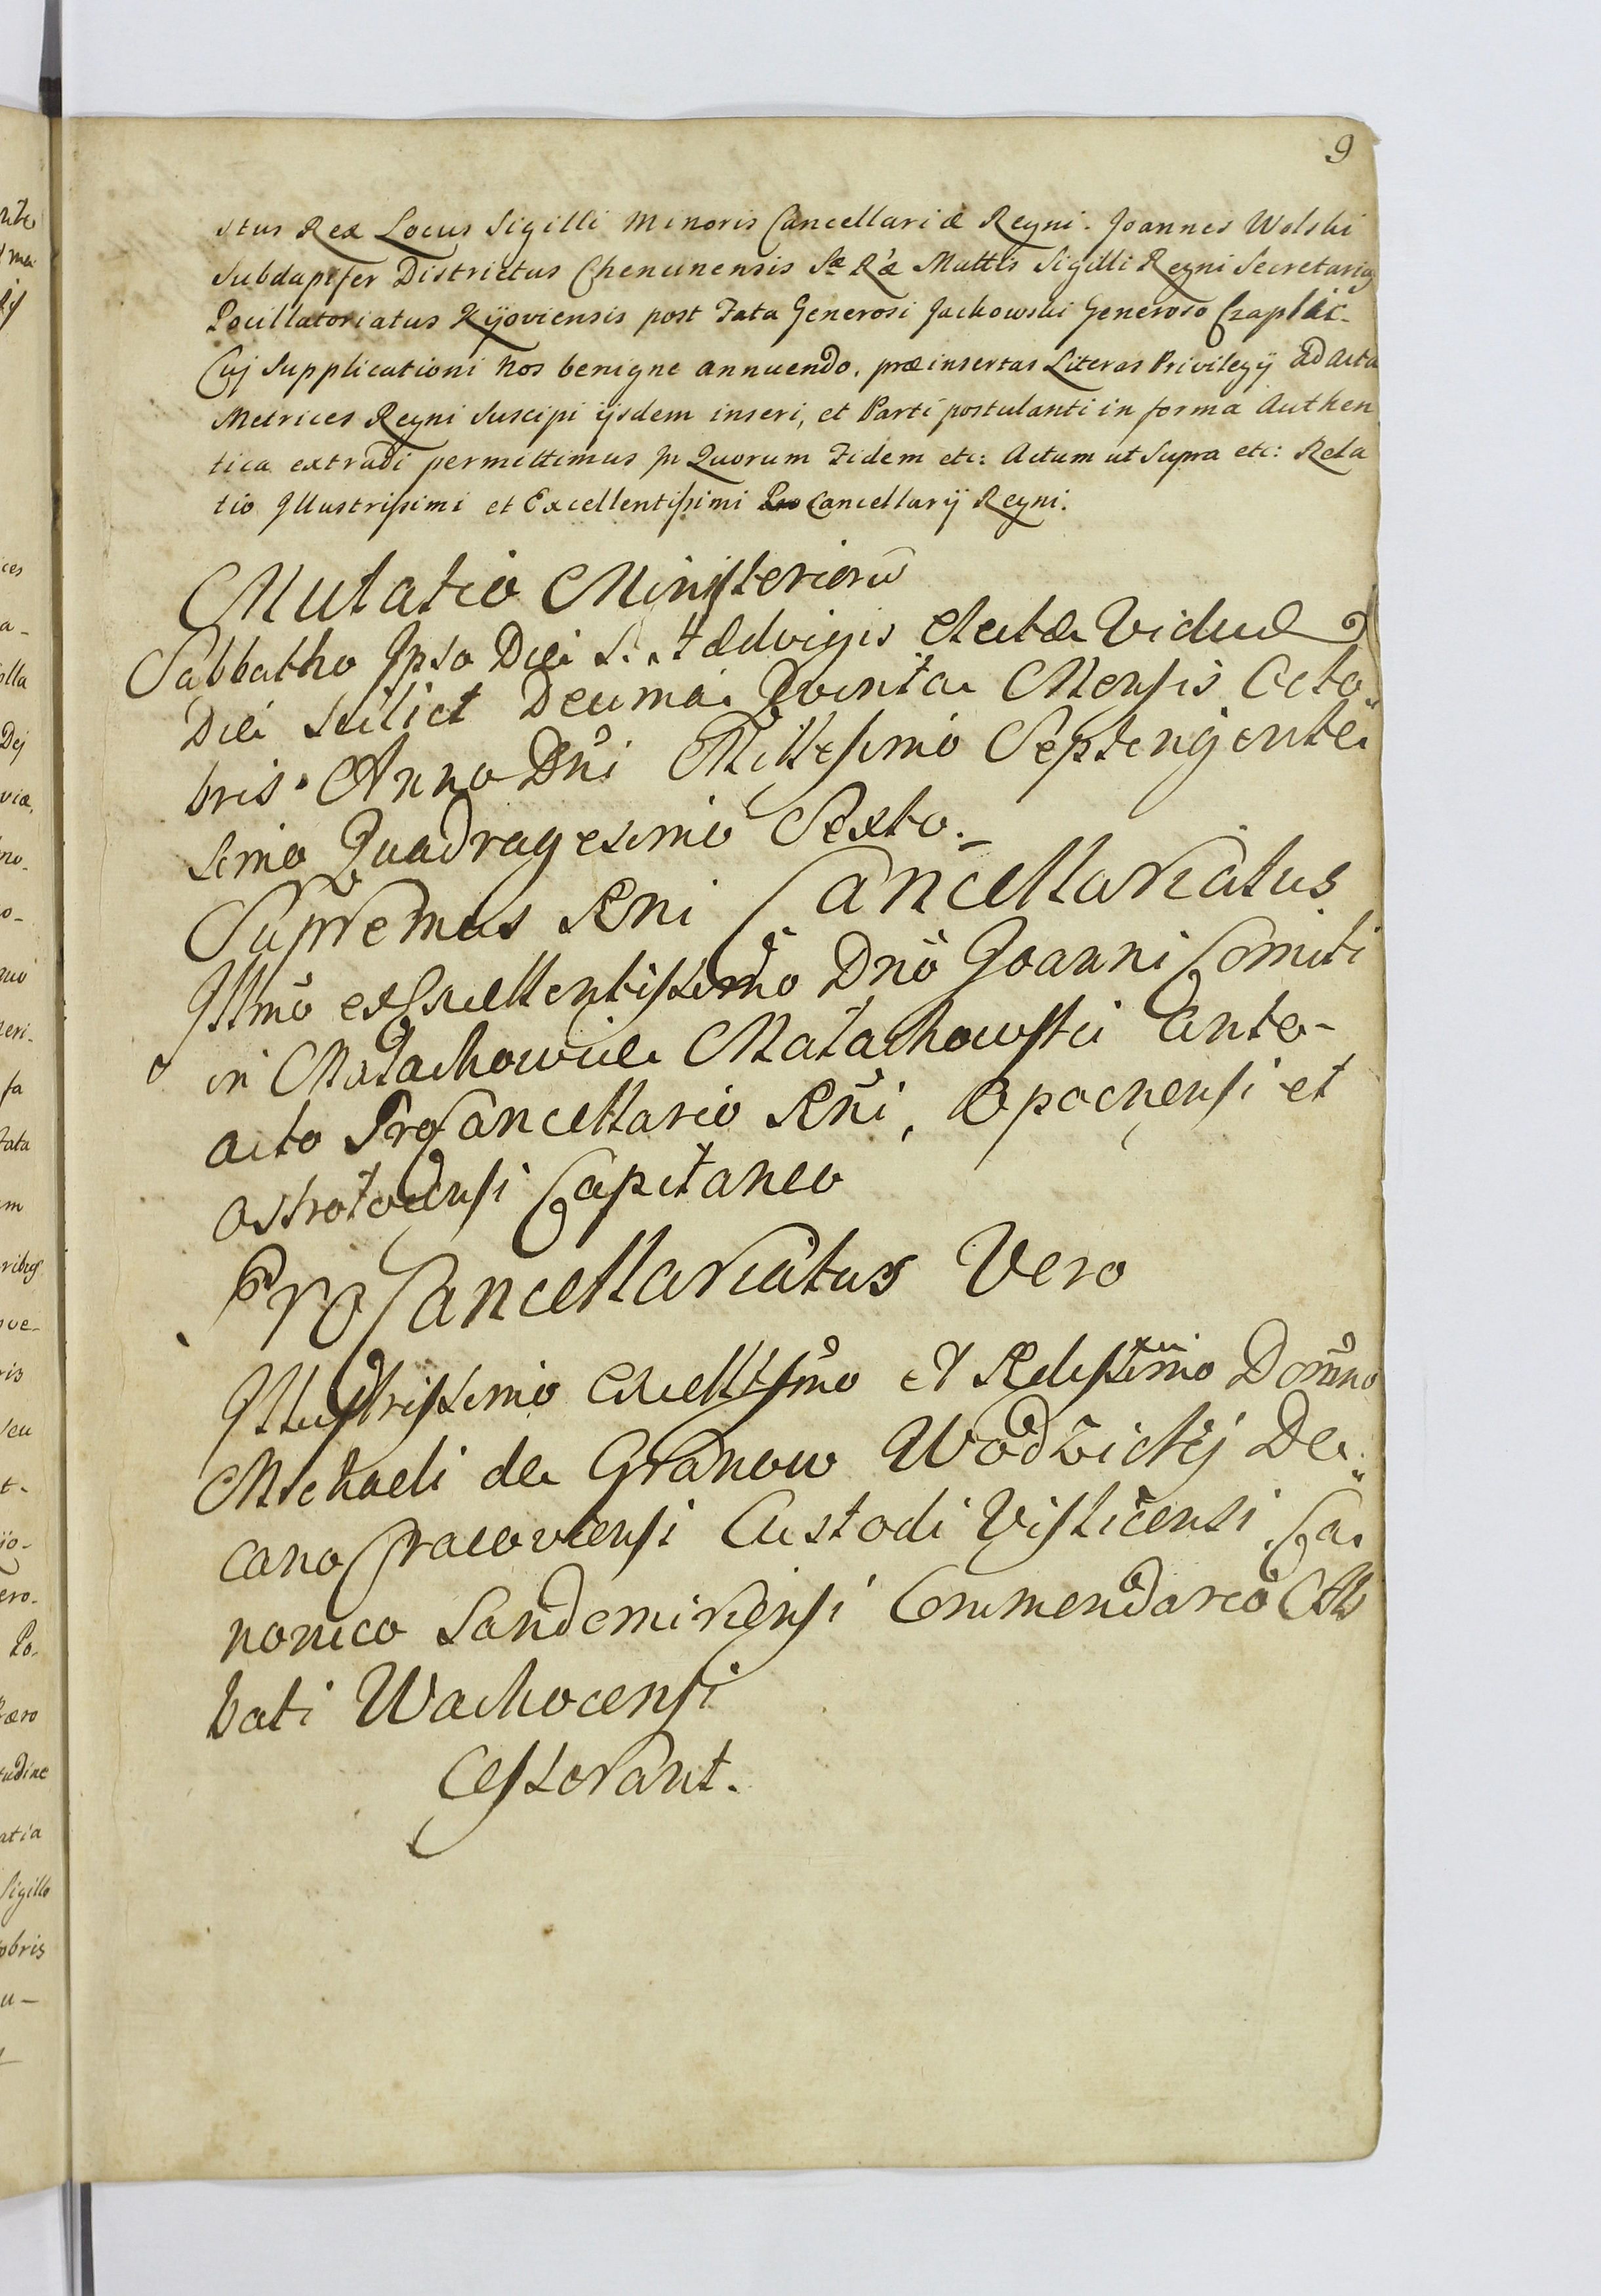 9
stus Rex Locus Sigilli Minoris Cancellariæ Regni. Joannes Wolski
Subdapifer Districtus Chencinensis Sæ Ræ Mattis Sigilli Regni Secretarius
Pocillatoriatus Kijoviensis post Fata Generosi Jackowski Generoso Czaplic-
Cuj Supplicationi Nos benigne annuendo, præinsertas Literas Privilegij ad Acta
Metrices Regni Suscipi ijsdem inseri, et Parti postulanti in forma Authen
tica extradi permittimus Jn Quorum Fidem etc: Actum ut Supra etc: Rela
tio Jllustrissimi et Excellentissimi Pro Cancellarij Regni.
Mutatio Ministeriorū
Sabbatho Jpso Die S. Hædvigis Electæ Viduæ
Die Scilicet Decima Quinta Mensis Octo
bris Anno Dni Millesimo Septingente
simo Quadragesimo Sexto.
Supremus Rni Cancellariatus
Jllmo Excellentissimo Dno Joanni Comiti
in Małachowice Małachowski Ante-
acto ProCancellario Rni, Opocnensi et
Ostrołocensi Capitaneo
ProCancellariatus Vero
Jllustrissimo Excellssmo et Rdissimo Domino
Michaeli de Granow Wodzickij De
cano Cracoviensi Custodi Visliciensi Ca
nonico Sandomiriensi Commendario Ab
bati Wachocensi
Cesserant.